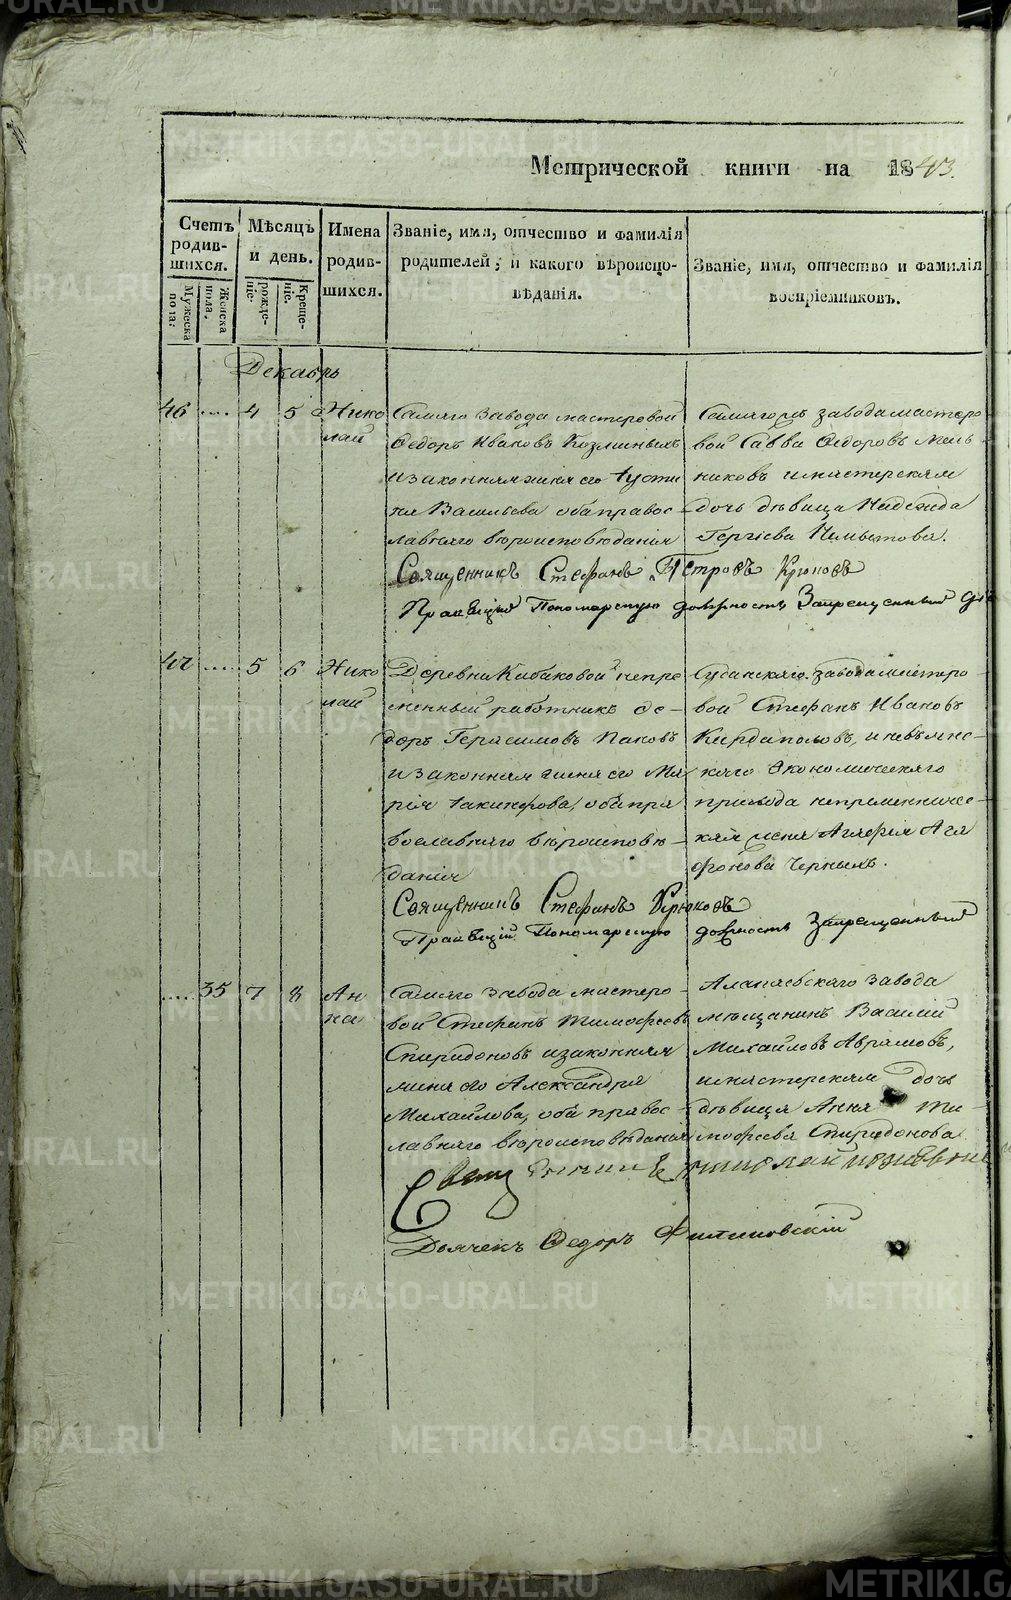 Метрической книги на 1843.
Счетъ родившихся.
Мужеска пола.
Женска пола.
Мѣсяцъ и день.
рожденіе.
Крещеніе.
Имена родившихся.
Званіе, имя, отчество и фамилія
родителей, и какого вѣроиспо-
вѣданія.
Званіе, имя, отчество и фамилія
воспріемниковъ.
Декабрь
46 .... 4 5 Нико
лай
Самаго завода мастеровой
Ѳедоръ Ивановъ Козминыхъ
и законная жена его Іусти
на Васильева оба правос
лавнаго вѣроисповѣданія
Самагожъ завода мастеро
вой Савва Ѳедоровъ Мель
никовъ и мастерская
дочь дѣвица Надежда
Священникъ Стефанъ Петровъ Крюковъ
Правящій Пономарскую должность Запрещенный
47 .... 5 6 Нико
лай
Деревни Кабаковой непре
менный работникъ Ѳе-
доръ Герасимовъ Паковъ
и законная жена его Ма
рія Іакинфова, оба пра
вославнаго вѣроисповѣ
данія
Суданскаго завода мастеро
вой Стефанъ Ивановъ
Кайдаполовъ, и невьянс-
каго Экономическаго
кая жена Агафія Ага
фонова Черныхъ.
Священникъ Стефанъ Крюковъ
Правящій Пономарскую должность Запрещенный
.... 35 7 8 Ан
на
Самаго завода мастеро
вой Стефанъ Тимофеевъ
Спиридоновъ и законная
жена его Александра
Михайлова, оба правос
лавнаго вѣроисповѣданія
Алапаевскаго завода
мѣщанинъ Василій
Михайловъ Абрамовъ,
и мастерская дочь
дѣвица Анна Ти-
мофеева Спиридонова
Дьячекъ Ѳедоръ Филиповскій
METRIKI.GASO-URAL.RU